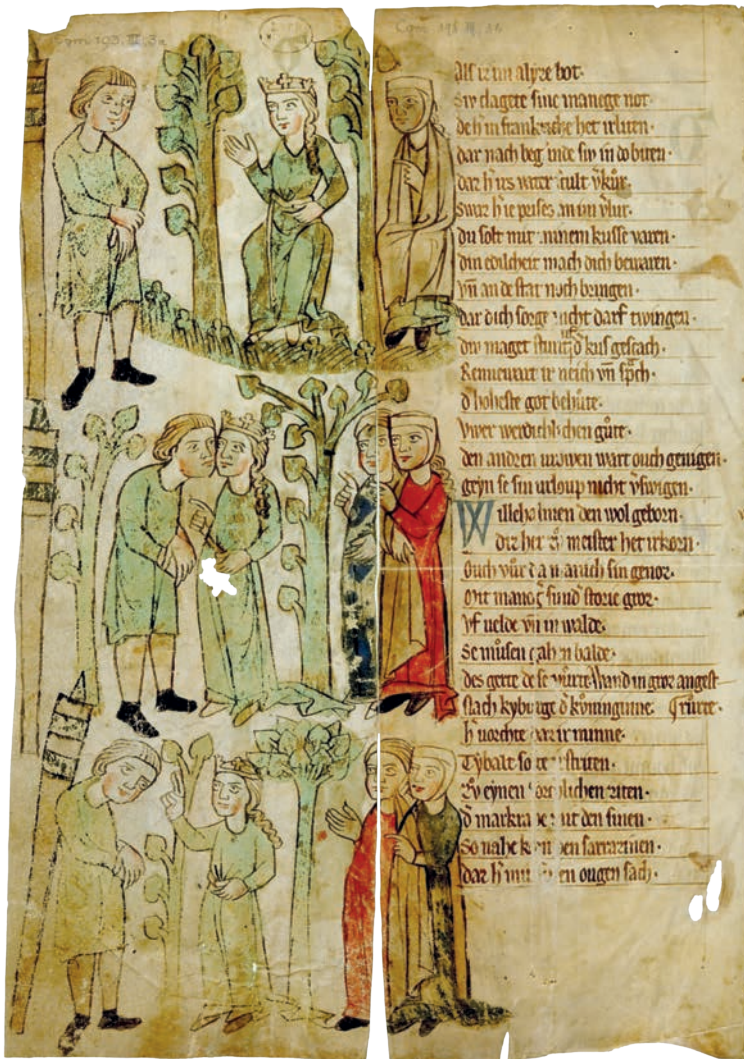 Cgm 193, III, 3r
Cgm 193 III, 3r
Als ir im alyze bot.
Siv clagete sine manege not.
de h in frankriche het irliten.
dar nach beg inde siv in do biten.
dar h irs vater scult v̄kůr.
Swaz h ie prises an im vlur.
du solt mit minem kusse varen.
din edilcheit mach dich bewaren.
Vn̄ an de stat noch bringen.
dar dich sorge nicht darf twingen.
div maget stunt uf d kus gescach.
Rennewart ir neich vn̄ sp̄ch.
d hoheste got behůte.
Vwer werdichlichen gůte.
den andren vrowen wart ouch genigen.
geyn se sin urloup nicht v̄swigen.
Willehalmen den wol geborn.
dir her zů meister het irkorn.
Ouch vůr da manich sin genoz.
Mit manoger sund storie groz.
Vf velde vn̄ in walde.
Se můsen gahen balde.
des gerte de se vůrte Wand in groz angest
stach kyburge d kůninginne. růrte.
h vorchte daz ir minne.
Tybalt solte irstriten.
Zv eynen ziten.
d markrave mit den sinen.
So nahe kom den sarrazinen.
daz h mit den ougen sach.